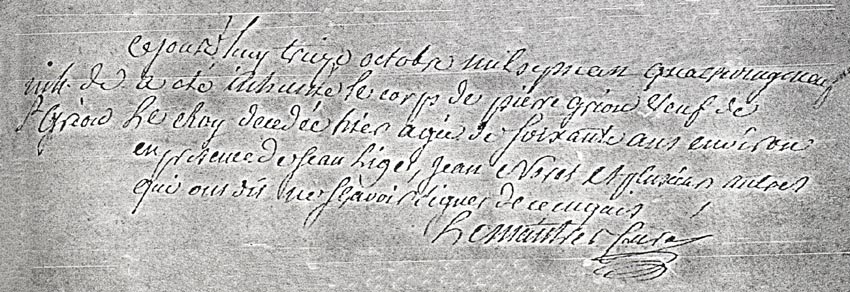 ce jourd'huy treize octobre mil sept cent quarante neuf
inh. de a été inhumé le corp de pierre Grion veuf de
p. Griou Le Roy decedée hier agée de soixante ans environ
en presence de Jean Liger, Jean et plusieurs autres
qui ont dit ne sçavoir signer de ce enquis
Lemaitre Curé